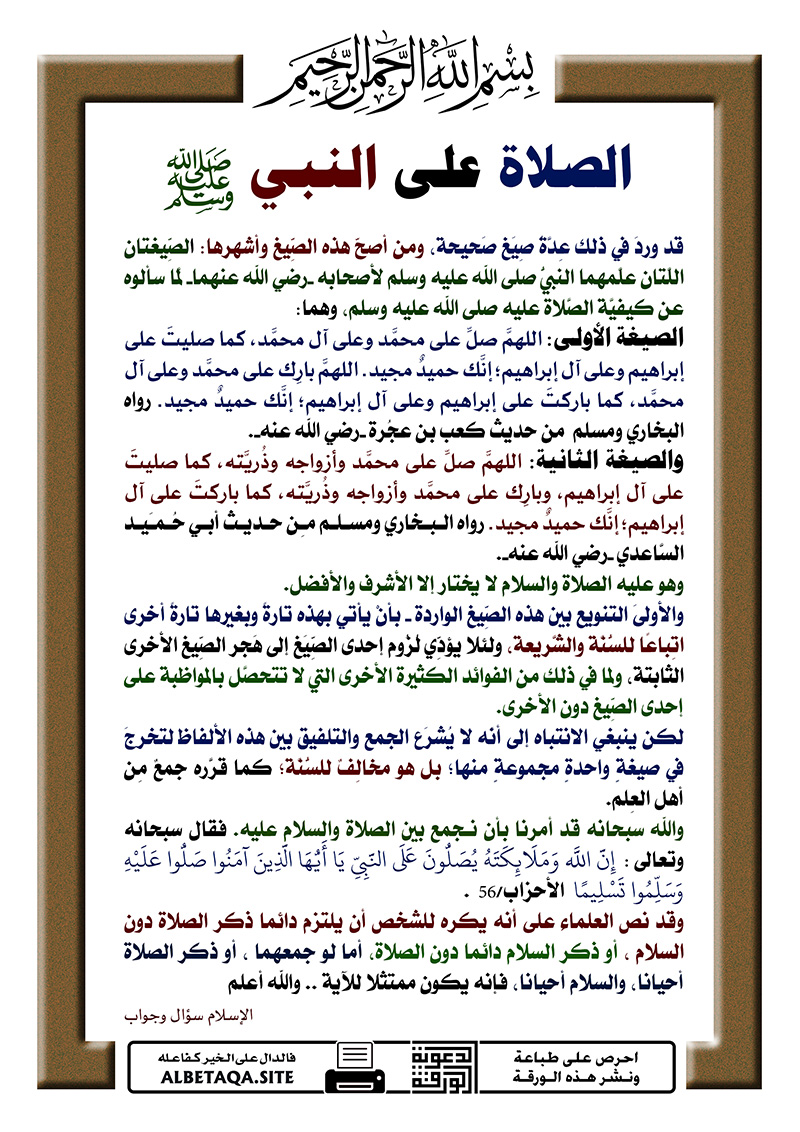 بِسْمِ اللَّهِ الرَّحْمَنِ الرَّحِيمِ
الصلاة على النبي صلى الله عليه وسلم
قد وردَ في ذلك عِدّةُ صِيَغ صَحيحة، ومن أصحّ هذه الصِّيغ وأشهرها: الصِّيغتان
اللّتان علّمهما النبيُّ صلى الله عليه وسلم لأصحابه ـ رضي الله عنهما ـ لمّا سألوه
عن كيفيّة الصّلاة عليه صلى الله عليه وسلم، وهما:
الصيغة الأولى: اللهمَّ صلِّ على محمَّد وعلى آل محمَّد، كما صليتَ على
إبراهيم وعلى آل إبراهيم؛ إنَّك حميدٌ مجيد. اللهمَّ بارِك على محمَّد وعلى آل
محمَّد، كما باركتَ على إبراهيم وعلى آل إبراهيم؛ إنَّك حميدٌ مجيد. رواه
البخاري ومسلم من حديث كعب بن عجُرة ـ رضي الله عنه ـ.
والصيغة الثانية: اللهمَّ صلِّ على محمَّد وأزواجه وذُريَّته، كما صليتَ
على آل إبراهيم، وبارِك على محمَّد وأزواجه وذُريَّته، كما باركتَ على آل
إبراهيم؛ إنَّك حميدٌ مجيد. رواه البخاري ومسلم مِن حديث أبي حُمَيد
السّاعدي ـ رضي الله عنه ـ.
وهو عليه الصلاة والسلام لا يختار إلا الأشرف والأفضل.
والأولىَ التنويع بين هذه الصِّيغ الواردة ـ بأنْ يأتي بهذه تارةً وبغيرها تارةً أخرى
اتِباعًا للسُنة والشّريعة، ولئلا يؤدّي لُزوم إحدى الصِّيَغ إلى هَجر الصِّيَغ الأخرى
الثابتة، ولما في ذلك من الفوائد الكثيرة الأخرى التي لا تتحصّل بالمواظبة على
إحدى الصِّيغ دون الأخرى.
لكن ينبغي الانتباه إلى أنه لا يُشرَع الجمع والتلفيق بين هذه الألفاظ لتخرجَ
في صيغةٍ واحدةٍ مجموعةٍ منها؛ بل هو مخالِفٌ للسُنة؛ كما قرّره جمعٌ مِن
أهل العِلم.
والله سبحانه قد أمرنا بأن نجمع بين الصلاة والسلام عليه. فقال سبحانه
وتعالى: إِنَّ اللَّهَ وَمَلَائِكَتَهُ يُصَلُّونَ عَلَى النَّبِيِّ يَا أَيُّهَا الَّذِينَ آمَنُوا صَلُّوا عَلَيْهِ
وَسَلِّمُوا تَسْلِيمًا الأحزاب/56 .
وقد نص العلماء على أنه يكره للشخص أن يلتزم دائما ذكر الصلاة دون
السلام ، أو ذكر السلام دائما دون الصلاة، أما لو جمعهما ، أو ذكر الصلاة
أحيانا، والسلام أحيانا، فإنه يكون ممتثلا للآية .. والله أعلم
الإسلام سؤال وجواب
احرص على طباعة
ونشر هذه الورقة
الدعوية
الورقة
فالدال على الخير كفاعله
ALBETAQA.SITE